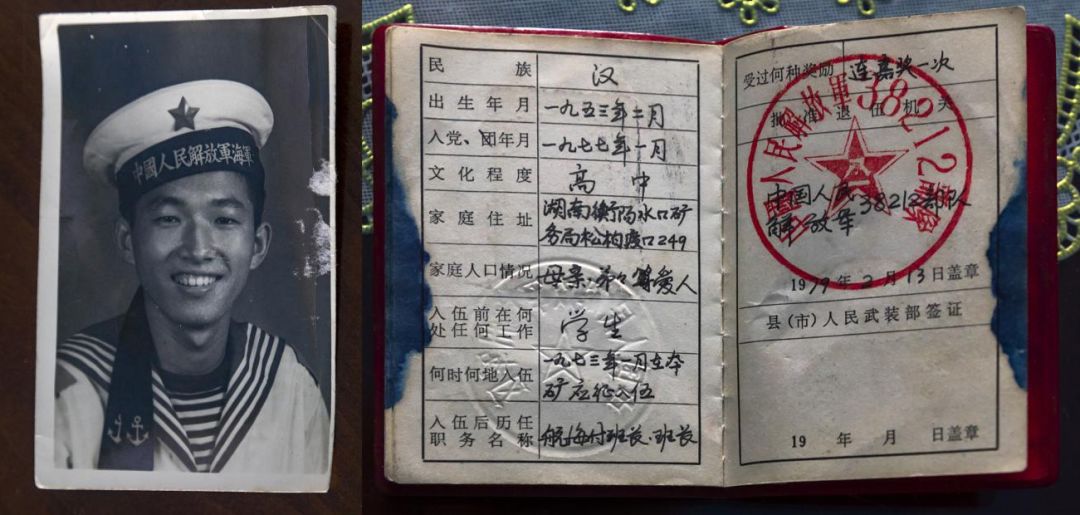 中國人民解放軍海軍
民族 汉
出生年月 一九五三年二月
入党、团年月 一九七七年一月
文化程度 高中
家庭住址 湖南衡阳水口矿
务局松柏渡口249
家庭人口情况 母亲·弟 爱人
入伍前在何
处任何工作 学生
何时何地入伍 一九七三年一月在本
矿应征入伍
入伍后历任
职务名称 航海付班长·班长
受过何种奖励 连嘉奖一次
批准退伍机关
中国人民解放軍38212部隊
中国人民
解放军38212部队
1979年2月13日盖章
县(市)人民武装部签证
19 年 月 日盖章